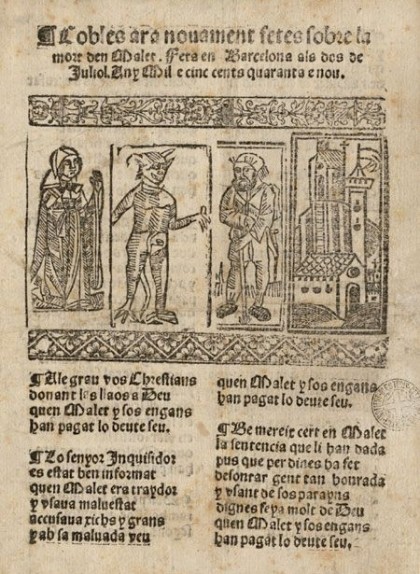 ¶Cobles ara nouament fetes sobre la
mort den Malet. Feta en Barcelona als dos de
Juliol. Any Mil e cinc cents quaranta e nou.
¶Alegrau vos Chrestians
donant les llaos a Deu
quen Malet y sos engans
han pagat lo deute seu.
¶Lo senyor Inquisidor
es estat ben informat
quen Malet era traydor
y vsaua maluestat
accusaua richs y grans
y ab sa maluada veu
quen Malet y sos engans
han pagat lo deute seu.
¶Be mereix cert en Malet
la sentencia que li han dada
pus que per dines ha fet
desonrar gent tan honrada
y vsant de sos parayns
dignes seya molt de Deu
quen Malet y sos engans
han pagat lo deute seu.